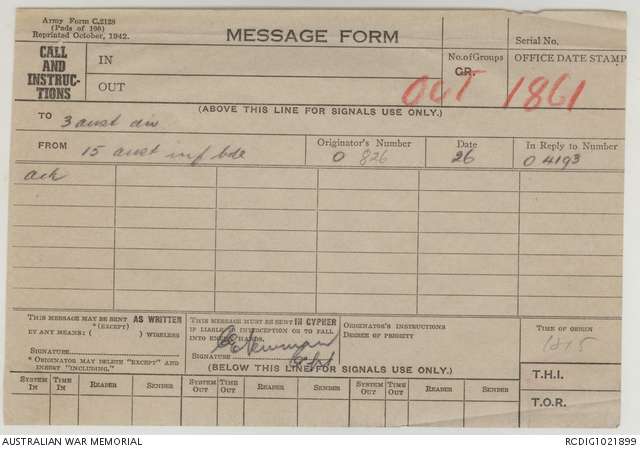 Army Form C.2128
(Pads of 100)
Reprinted October, 1942.
MESSAGE FORM
Serial No.
CALL AND INSTRUC-TIONS
IN
OUT
No. of Groups
GR.
OFFICE DATE STAMP
OUT 1861
(ABOVE THIS LINE FOR SIGNALS USE ONLY.)
TO 3 aust div
FROM 15 aust inf bde
Originator's Number
O 826
Date
26
In Reply to Number
O 4193
ack
THIS MESSAGE MAY BE SENT AS WRITTEN
*(EXCEPT)
BY ANY MEANS: ( ) WIRELESS
SIGNATURE
* ORIGINATOR MAY DELETE "EXCEPT" AND
INSERT "INCLUDING."
THIS MESSAGE MUST BE SENT IN CYPHER
IF LIABLE TO INTERCEPTION OR TO FALL
INTO ENEMY HANDS.
SIGNATURE
Capt
ORIGINATOR'S INSTRUCTIONS
DEGREE OF PRIORITY
TIME OF ORIGIN
1815
T.H.I.
T.O.R.
(BELOW THIS LINE FOR SIGNALS USE ONLY.)
SYSTEM IN
TIME IN
READER
SENDER
SYSTEM OUT
TIME OUT
READER
SENDER
SYSTEM OUT
TIME OUT
READER
SENDER
AUSTRALIAN WAR MEMORIAL
RCDIG1021899